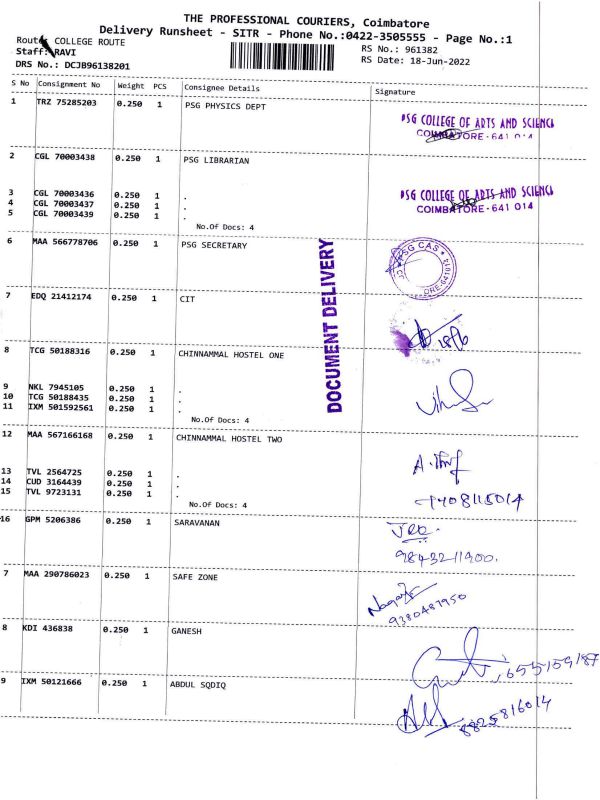 THE PROFESSIONAL COURIERS, Coimbatore
Delivery Runsheet - SITR - Phone No.:0422-3505555 - Page No.:1
Route: COLLEGE ROUTE
RS No.: 961382
Staff: RAVI
RS Date: 18-Jun-2022
DRS No.: DCJB96138201
S No Consignment No Weight PCS Consignee Details Signature
1 TRZ 75285203 0.250 1 PSG PHYSICS DEPT
PSG COLLEGE OF ARTS AND SCIENCE
COIMBATORE - 641 014
2 CGL 70003438 0.250 1 PSG LIBRARIAN
3 CGL 70003436 0.250 1 .
PSG COLLEGE OF ARTS AND SCIENCE
4 CGL 70003437 0.250 1 .
COIMBATORE - 641 014
5 CGL 70003439 0.250 1 .
No.Of Docs: 4
6 MAA 566778706 0.250 1 PSG SECRETARY
PSG CAS
ORE-641014
DOCUMENT DELIVERY
7 EDQ 21412174 0.250 1 CIT
18/6
8 TCG 50188316 0.250 1 CHINNAMMAL HOSTEL ONE
9 NKL 7945105 0.250 1 .
10 TCG 50188435 0.250 1 .
11 IXM 501592561 0.250 1 .
No.Of Docs: 4
12 MAA 567166168 0.250 1 CHINNAMMAL HOSTEL TWO
13 TVL 2564725 0.250 1 .
14 CUD 3164439 0.250 1 .
15 TVL 9723131 0.250 1 .
No.Of Docs: 4
9408115014
16 GPM 5206386 0.250 1 SARAVANAN
9843211900.
7 MAA 290786023 0.250 1 SAFE ZONE
9380487950
8 KDI 436838 0.250 1 GANESH
9 IXM 50121666 0.250 1 ABDUL SQDIQ
8825816014